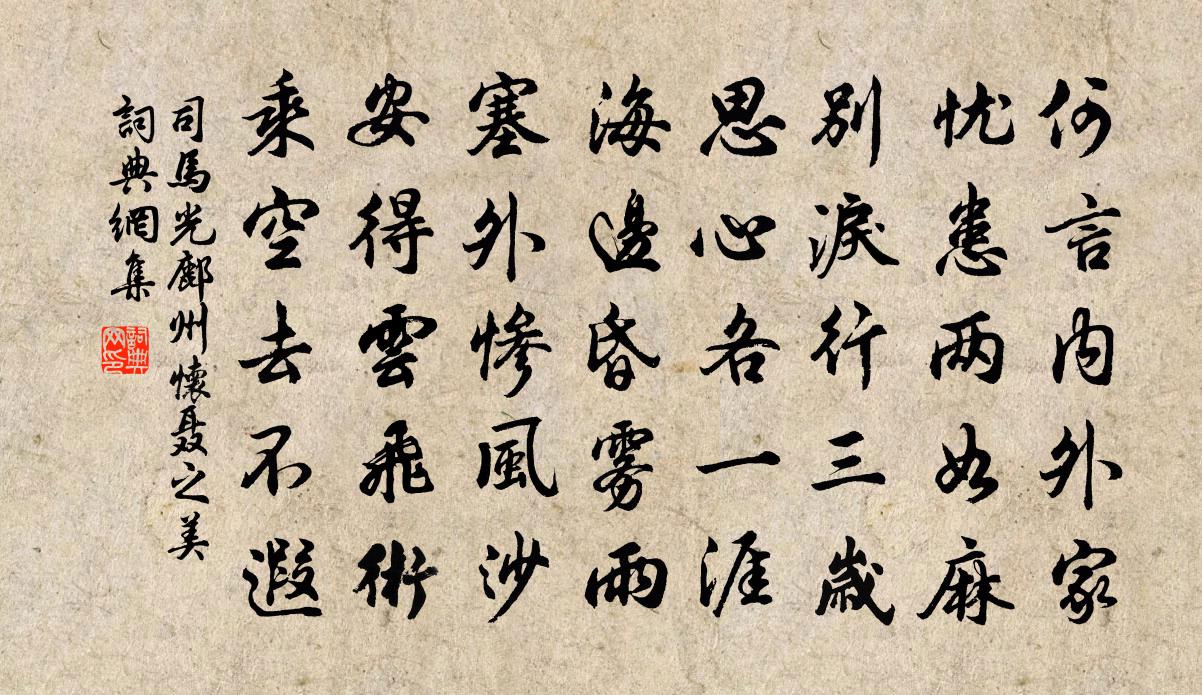 何言内外家
忧患两如麻
别淚行三歳
思心各一涯
海邊昏雾雨
塞外惨風沙
安得雲飛術
乘空去不遐
司馬光鄜州懷聂之美
詞典網集
詞典网印